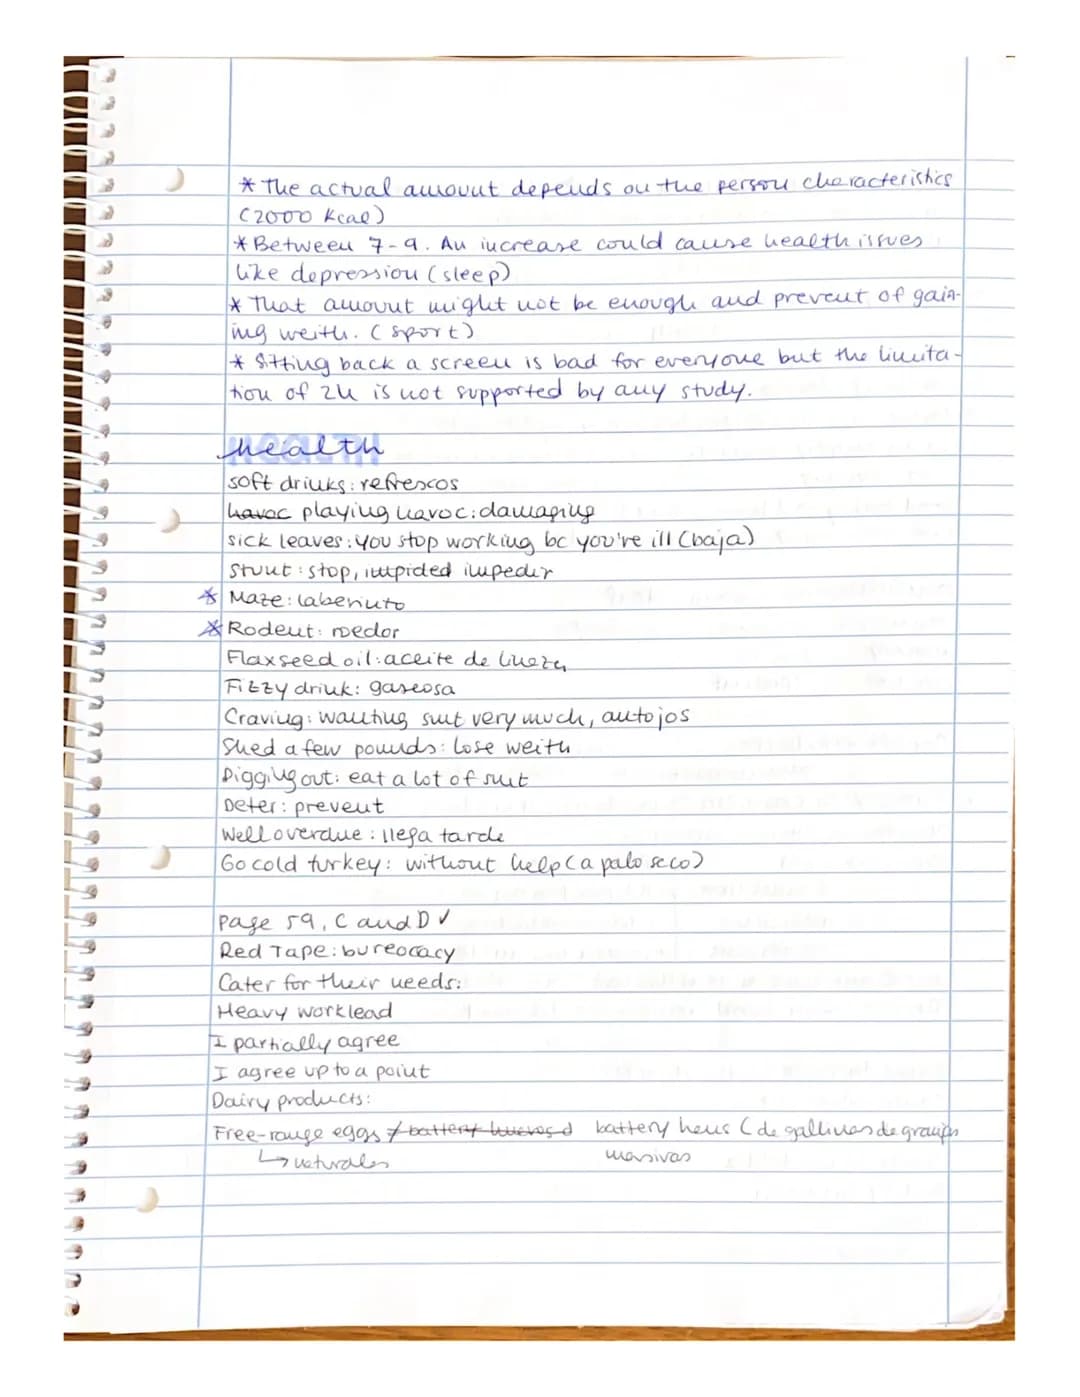 * The actual amount depends on the person characteristics
(2000 Kcal)
* Between 7-9. An increase could cause health issues
like depression (sleep)
* That amount might not be enough and prevent of gain-
ing weith. (sport)
* Sitting back a screen is bad for everyone but the limita-
tion of 2h is not supported by any study.
health
soft drinks: refrescos
havoc playing havoc: damaging
sick leaves: you stop working bc you're ill (baja)
Stunt: stop, impided impedir
* Maze: laberinto
* Rodent: roedor
Flaxseed oil: aceite de lineza
Fizzy drink: gaseosa
Craving: wanting smt very much, antojos
Shed a few pounds: lose weith
Digging out: eat a lot of smt
Deter: prevent
Well overdue: llega tarde
Go cold turkey: without help (a palo seco)
Page 59, C and D ✓
Red Tape: bureocacy
Cater for their needs:
Heavy worklead
I partially agree
I agree up to a point
Dairy products:
Free-range eggs ≠ battery huevos d battery hens (de gallinas de granjas
↳ naturales masivas